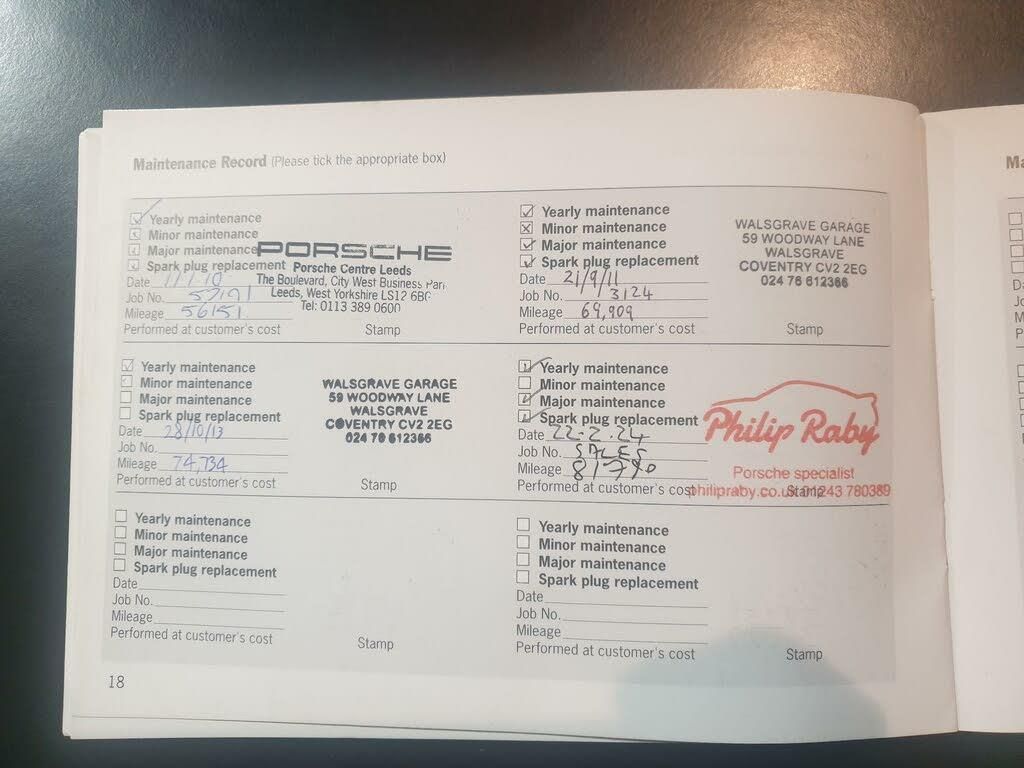 Maintenance Record (Please tick the appropriate box)
Yearly maintenance
Minor maintenance
Major maintenance
Spark plug replacement
Date
Job No.
Mileage 56151
Performed at customer's cost
PORSCHE
Porsche Centre Leeds
The Boulevard, City West Business Par
Leeds, West Yorkshire LS12 6
Tel: 0113 389 0600
Stamp
Yearly maintenance
Minor maintenance
Major maintenance
Spark plug replacement
Date 21/9/11
Job No. 3124
Mileage 69,909
Performed at customer's cost
WALSGRAVE GARAGE
59 WOODWAY LANE
WALSGRAVE
COVENTRY CV2 2EG
024 76 612366
Stamp
Yearly maintenance
Minor maintenance
Major maintenance
Spark plug replacement
Date 28/10/13
Job No.
Mileage 74,734
Performed at customer's cost
WALSGRAVE GARAGE
59 WOODWAY LANE
WALSGRAVE
COVENTRY CV2 2EG
024 76 612366
Stamp
Yearly maintenance
Minor maintenance
Major maintenance
Spark plug replacement
Date 22-2-24
Job No. SALES
Mileage 81790
Performed at customer's cost
Philip Raby
Porsche specialist
philipraby.co.uk 01243 780389
Stamp
Yearly maintenance
Minor maintenance
Major maintenance
Spark plug replacement
Date
Job No.
Mileage
Performed at customer's cost
Stamp
Yearly maintenance
Minor maintenance
Major maintenance
Spark plug replacement
Date
Job No.
Mileage
Performed at customer's cost
Stamp
18